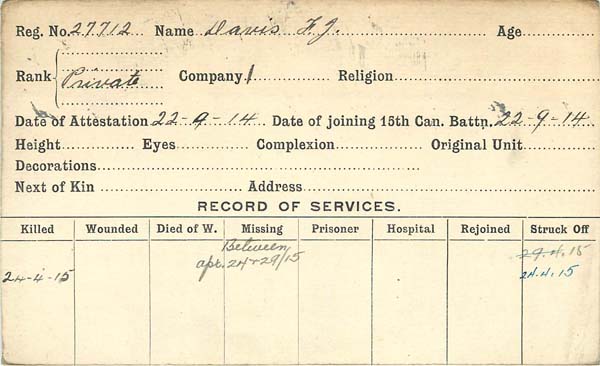 Reg. No. 27712 Name Davis F.J. Age
Rank Private Company 1 Religion
Date of Attestation 22-9-14 Date of joining 15th Can. Battn. 22-9-14
Height Eyes Complexion Original Unit
Decorations
Next of Kin Address
RECORD OF SERVICES.
Killed Wounded Died of W. Missing Prisoner Hospital Rejoined Struck Off
Between 29.4.15
24-4-15 apr. 24-29/15 24.4.15